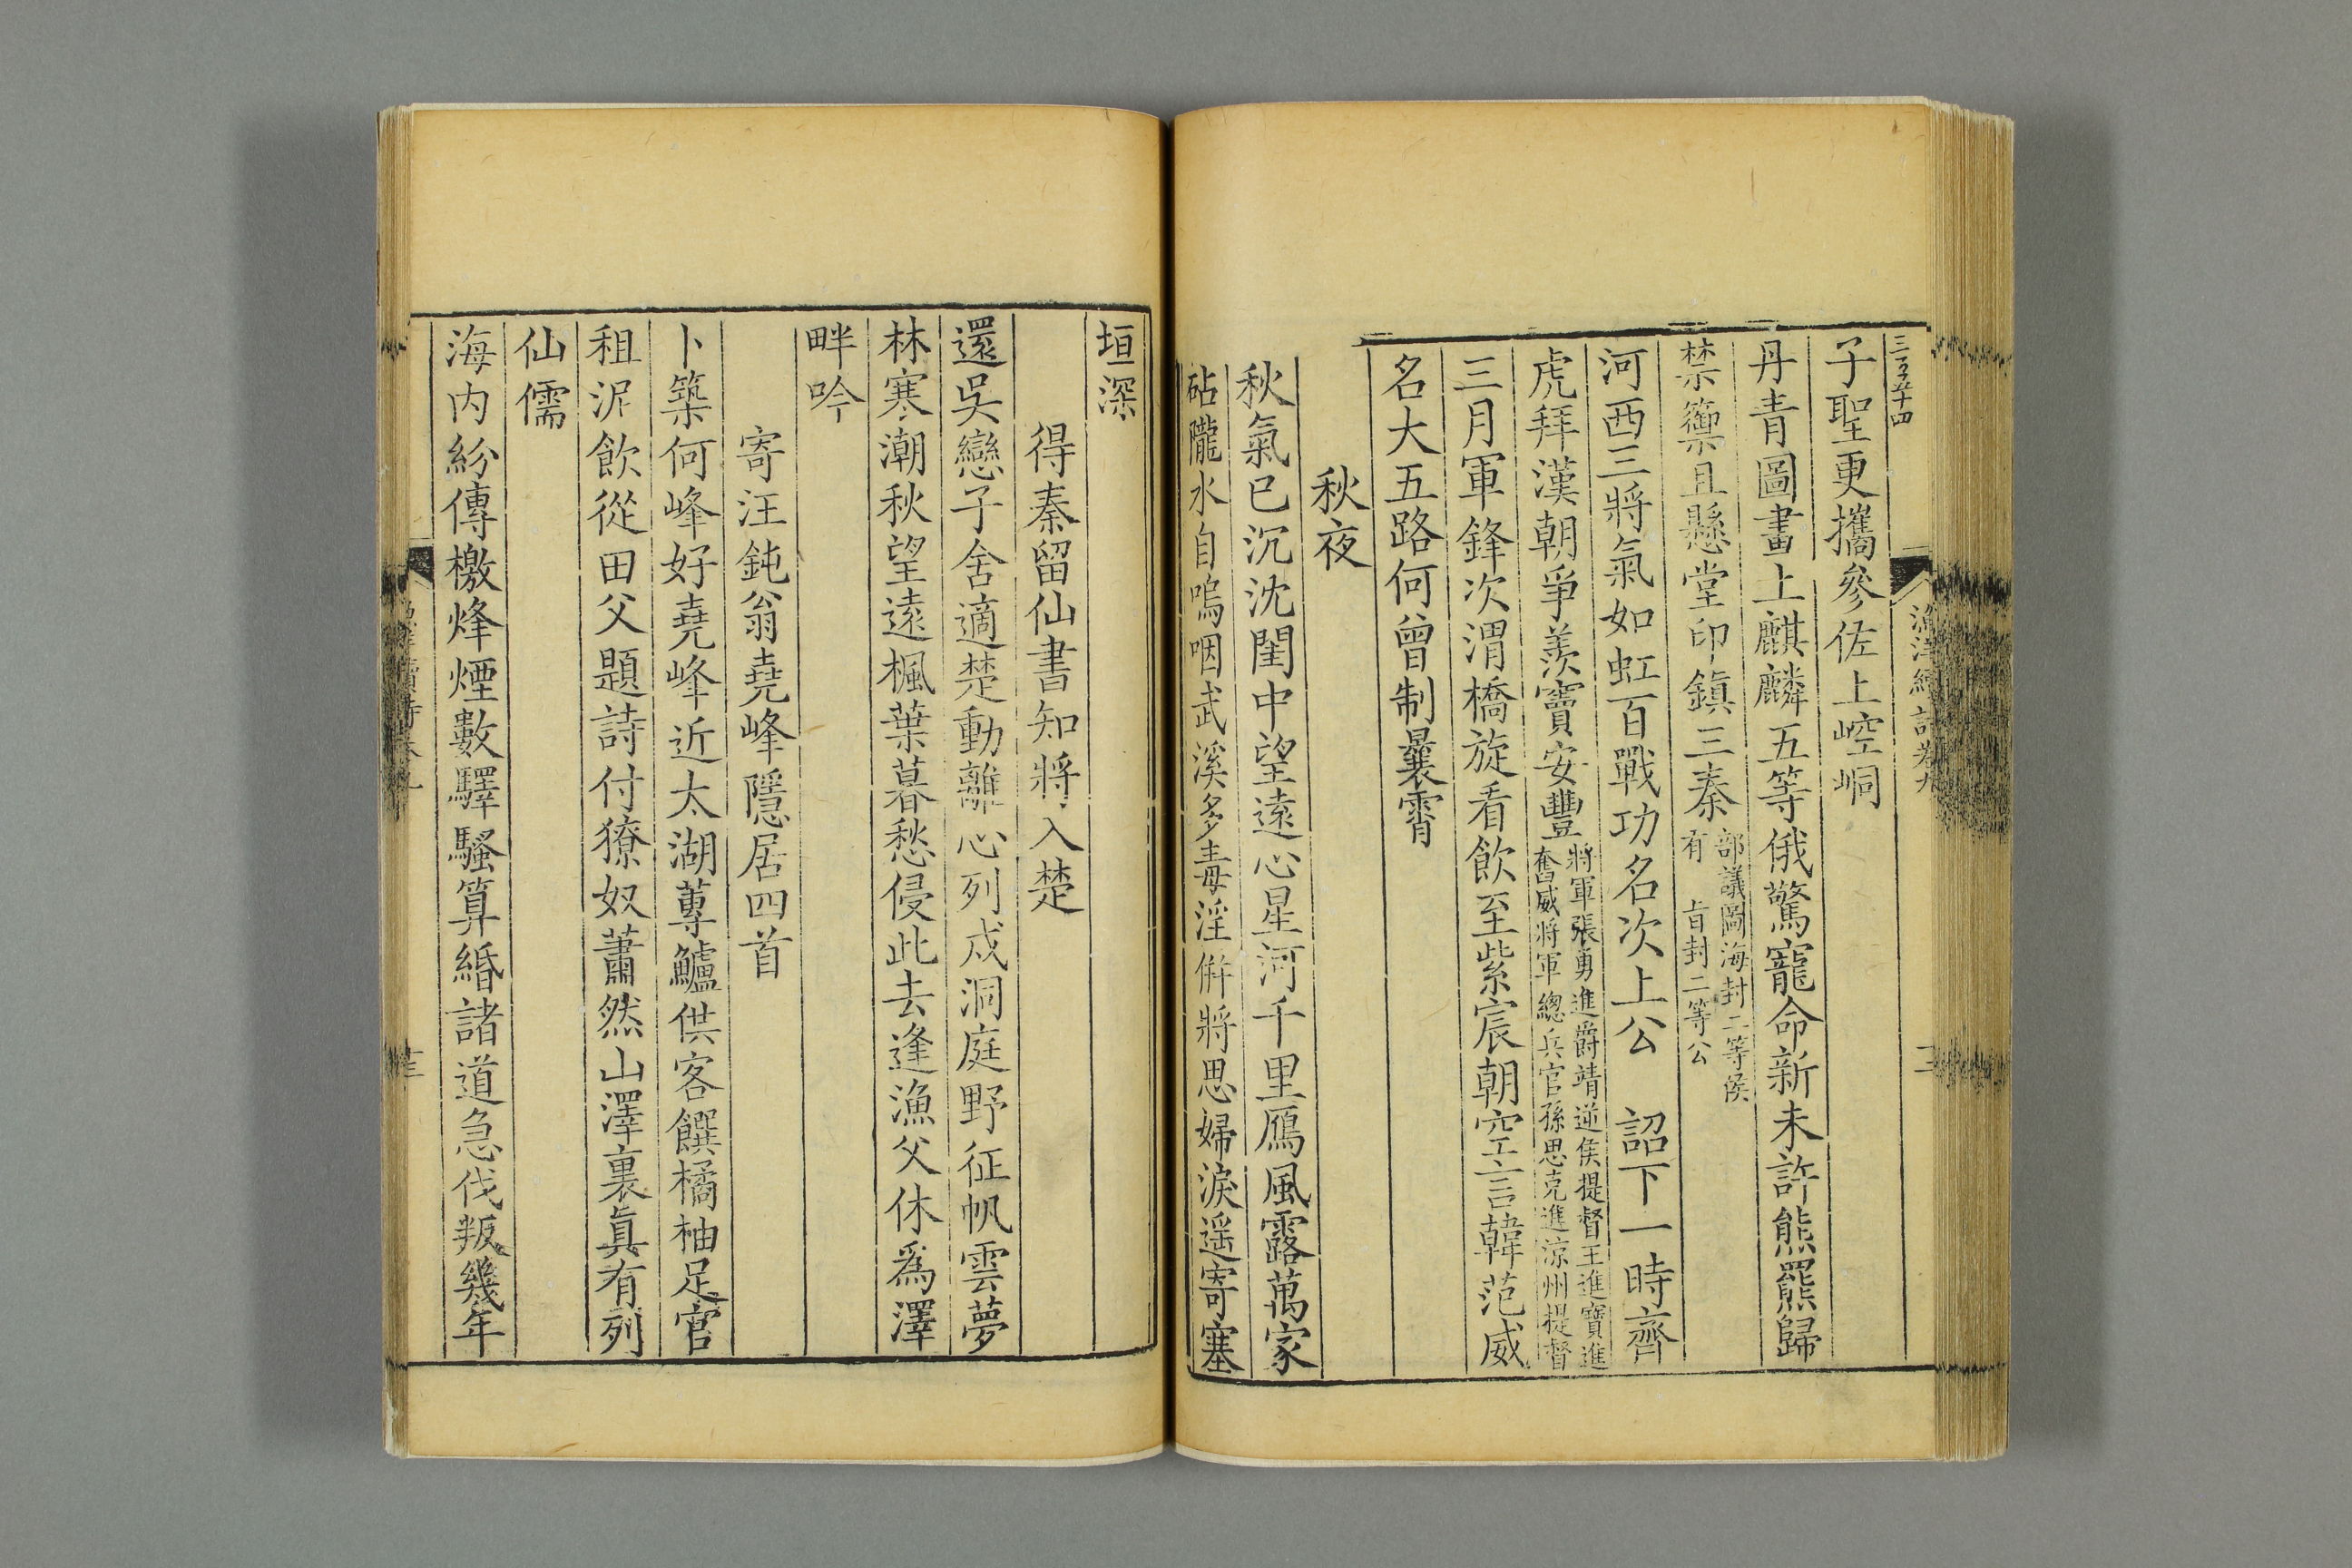 子聖更攜參佐上崆峒
丹青圖畫上麒麟五等俄驚寵命新未許熊羆歸
禁籞且懸堂印鎮三秦部議圖海封二等侯
有 㫖封二等公
河西三將氣如虹百戰功名次上公 詔下一時齊
虎拜漢朝爭羨竇安豐將軍張勇進爵靖逆侯提督王進寶進
奮威將軍總兵官孫思克進涼州提督
三月軍鋒次渭橋旋看飲至紫宸朝空言韓范威
名大五路何曾制曩霄
秋夜
秋氣已沉沈閨中望遠心星河千里鴈風露萬家
砧隴水自嗚咽武溪多毒淫倂將思婦淚遥寄塞
垣深
得秦留仙書知將入楚
還吳戀子舍適楚動離心列戍洞庭野征帆雲夢
林寒潮秋望遠楓葉暮愁侵此去逢漁父休爲澤
畔吟
寄汪鈍翁堯峰隱居四首
卜築何峰好堯峰近太湖蓴鱸供客饌橘柚足官
租泥飲從田父題詩付獠奴蕭然山澤裏眞有列
仙儒
海内紛傳檄烽煙數驛騷算緡諸道急伐叛幾年